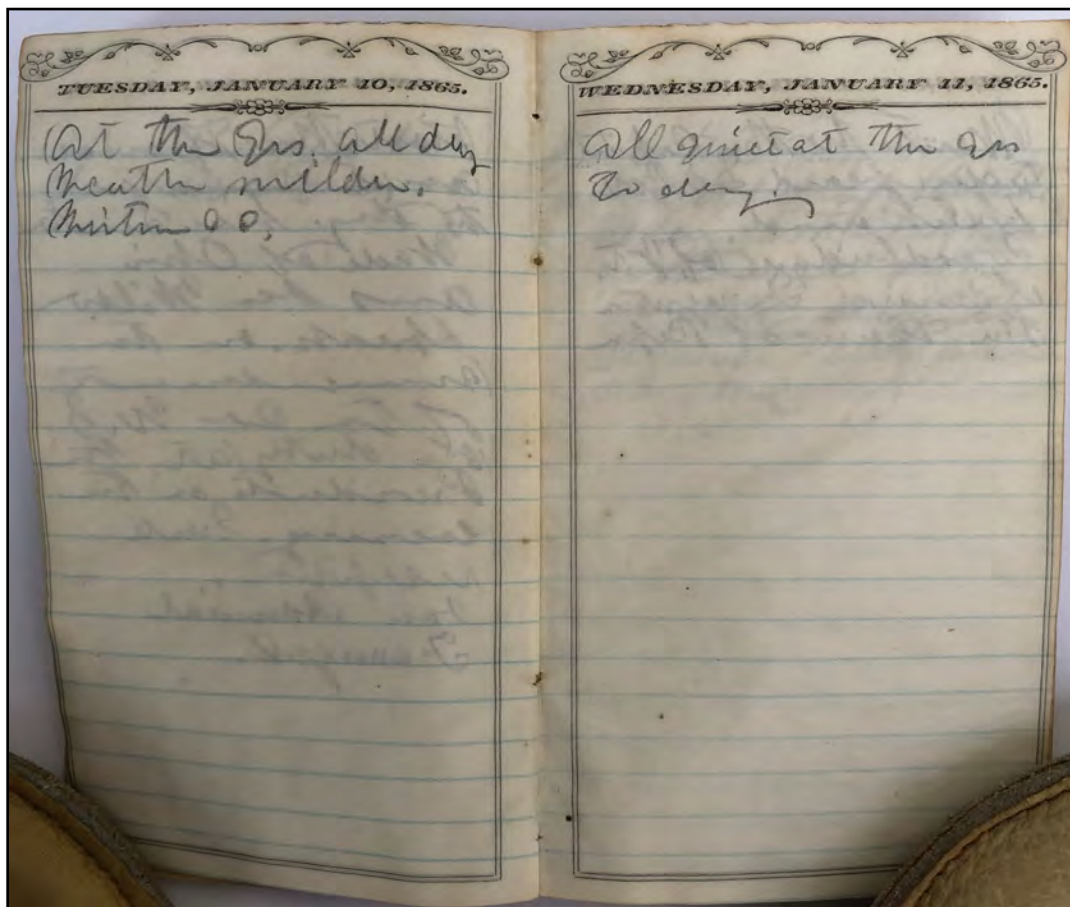 TUESDAY, JANUARY 10, 1865.
At the Qrs. all day
Weather milder.
WEDNESDAY, JANUARY 11, 1865.
All quiet at the Qrs
To day.